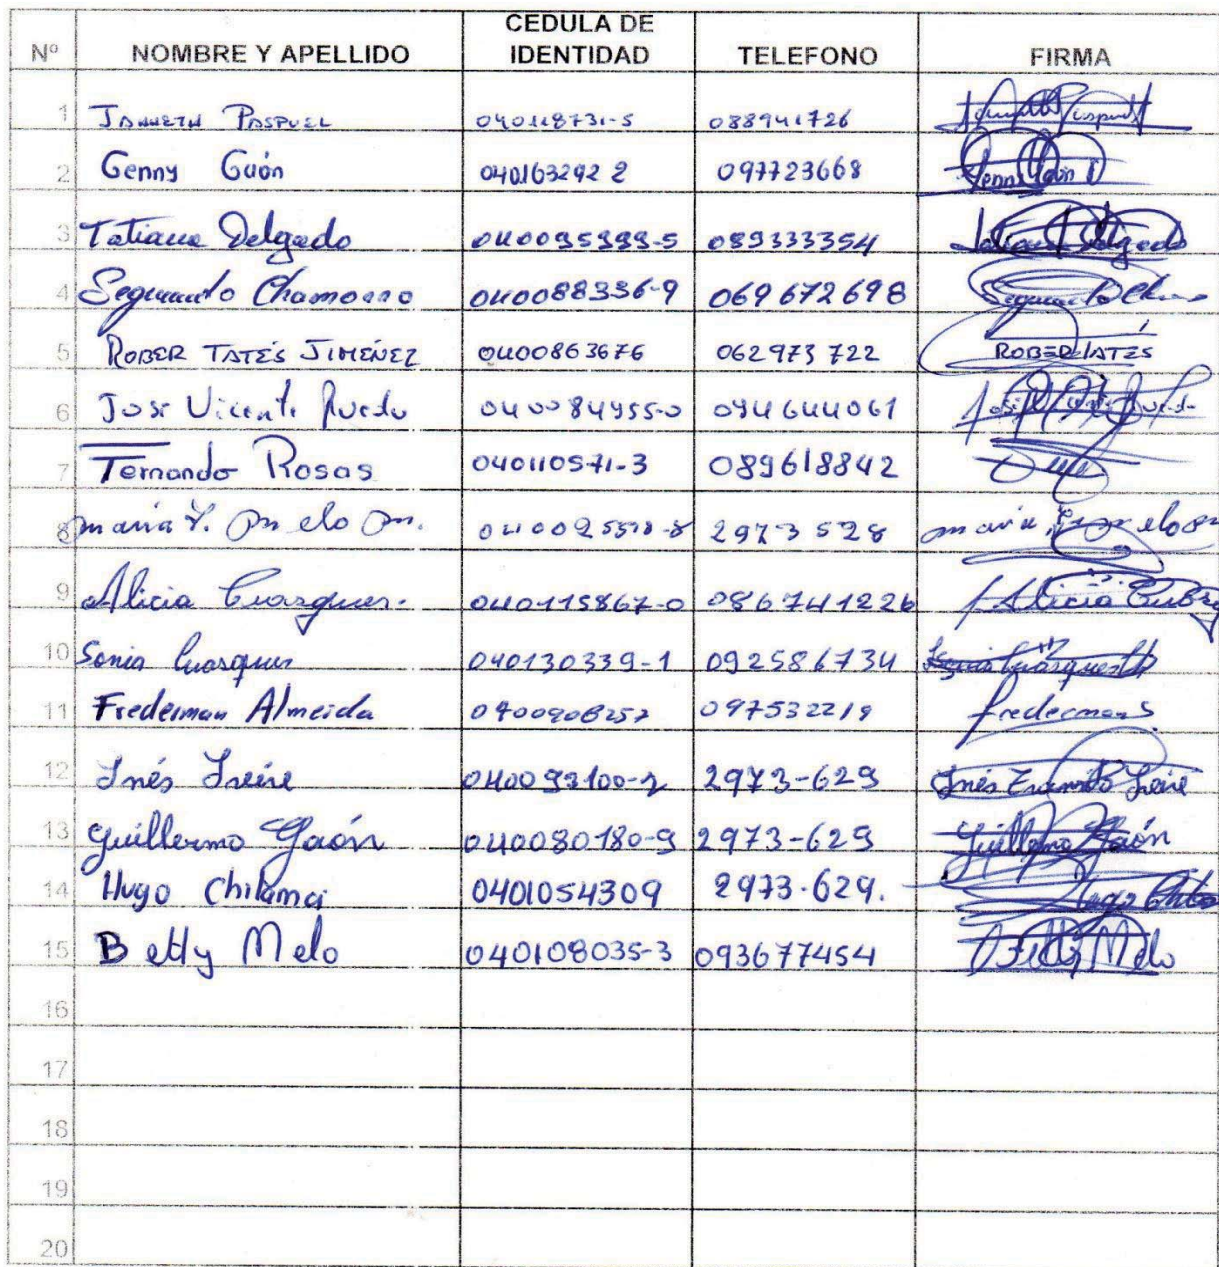 Nº NOMBRE Y APELLIDO CEDULA DE IDENTIDAD TELEFONO FIRMA
1 JANNETH PASPUEL 040118731-5 088941726
2 Genny Gaón 040163292 2 097723668
3 Tatiana Delgado 040095999-5 089333354 Tatiana Delgado
4 Segundo Chamorro 040088336-9 069672698
5 ROBER TATÉS JIMÉNEZ 0400863676 062973722 ROBER TATES
6 José Vicente 040084955-0 094644061
7 Fernando Rosas 040110571-3 089618842
8 maria 2973528 maria
9 Alicia Cuasquer. 040115867-0 086741226 Alicia
10 Sonia Cuasquer 040130339-1 092586734
11 Frederman Almeida 097532219
12 Inés Freire 040093100-2 2973-629 Inés Freire
13 Guillermo Gaón 040080180-9 2973-629 Guillermo Gaón
14 Hugo Chilamá 0401054309 2973-629. Hugo
15 Betty Melo 040108035-3 093677454 Betty Melo
16
17
18
19
20